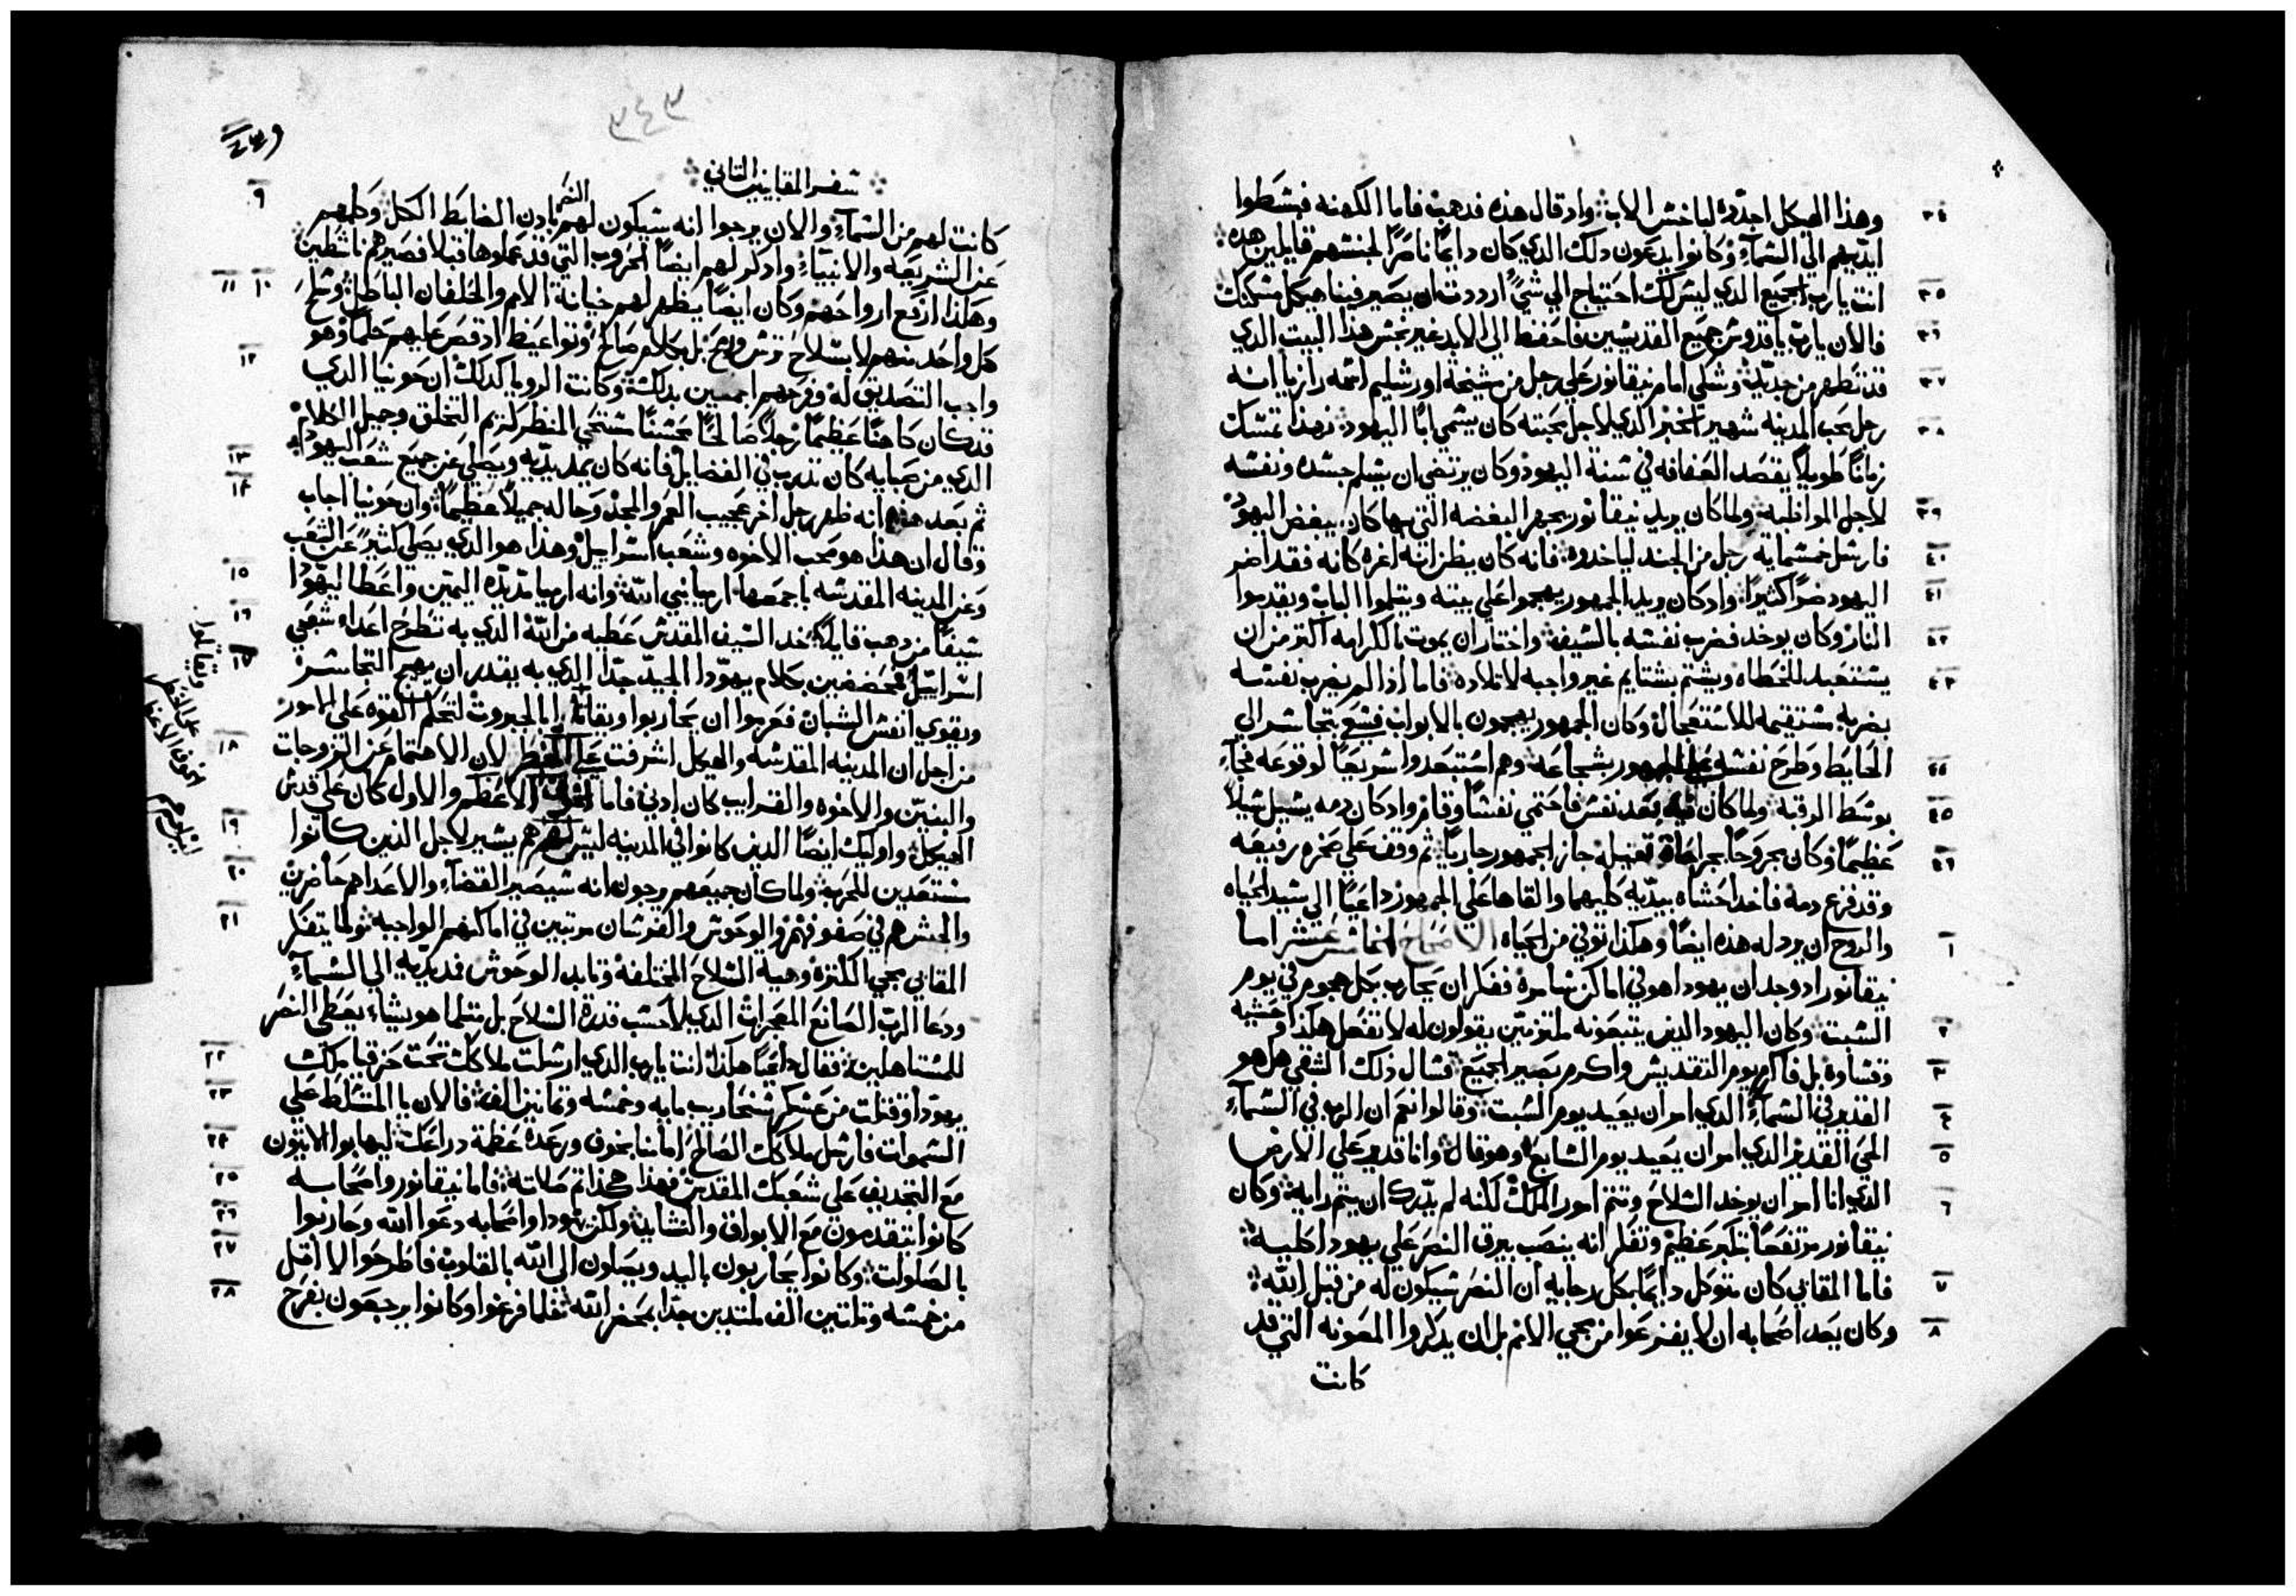 وهذا الهيكل اجدده لباخس الاب واد قال هذه فدهب فاما الكهنه فبشطوا
٣٤
ايديهم الي الشماء وكانوا يدعون دلك الدي كان دايمًا ناصرًا لجنشهم قايلين هده
انت يارب الجميع الدي ليس لك احتياج الي شي اردت ان يصير فينا هيكل مشكنك
٣٥
فالان يارب ياقدوس جميع القديشين فاحفظ الي الابد غير نجش هدا البيت الدي
٣٦
قد تطهر من جديد وشلي امام نيقانور علي رجل من مشيخة اورشليم اشمه رازيا انه
٣٧
رجل محب المدينه شهير الخبر الدي لاجل محبته كان يشمي ابًا اليهود فهدا تمشك
٣٨
زمانًا طويلاً بقصد العفافه في شنة اليهود وكان يرتضي ان يشلم جشده ونفشه
لاجل المواظبه ولما كان يريد نيقانور يجهر البغضه التي بها كان يبغض اليهود
٣٩
فارشل خمشمايه رجل من الجند لياخدوه فانه كان يظن انه اغره كانه فقد اضر
٤٠
اليهود ضرًا كثيرًا واد كان يريد الجمهور يهجموا علي بيته ويثلموا الباب ويقدموا
٤١
النار وكان يوخد فضرب نفشه بالشيف واختار ان يموت بالكرامه اكتر من ان
٤٢
يشتعبد للخطاه ويشتم بشتايم غير واجبه لاتلاده فاما اد لم يضرب نفشه
٤٣
بضربه مشتقيمه للاشتعجال وكان الجمهور يهجمون بالابواب فشعي بتجاشر الي
الحايط وطرح نفشه علي الجمهور بشجاعه وهم اشتبعدوا شريعًا لوقوعه فجآء
٤٤
بوشط الرقبه ولما كان فيه بعد نفش فاحتمي نفشًا وقام واد كان دمه يشيل شيلاً
٤٥
عظيمًا وكان مجروحًا بجراحات تقيله جاز الجمهور جاريًا ثم وقف علي صخره رفيعه
٤٦
وقد فزع دمه فاخد احشاه بيديه كليهما والقاها علي الجمهور داعيًا الي شيد الحياه
والروح ان يرد له هذه ايضًا وهكدا توفي من الحياه الاصحاح الخامش عشر اما
١
نيقانور اد وجد ان يهودا هو في اماكن شامره ففكر ان يحارب بكل هجوم في يوم
الشبت وكان اليهود الدين يتبعونه ملتزمين يقولون له لا تفعل هكدا وحشيه
٢
وقشاوه بل فاكرم يوم التقديش واكرم بصير الجميع فشال دلك الشقي هل هو
٣
القدير في الشماء الدي امر ان يعيد يوم الشبت وقالوا نعم ان الرب في الشماء
٤
الحي القدير الدي امر ان يعيد يوم الشابع وهو قال وانا قدير علي الارض
٥
الدي انا امر ان يوخد الشلاح وتتم امور الملك لكنه لم يدرك ان يتم رايه وكان
٦
نيقانور مرتفعًا بتكبر عظيم وتفكر انه ينصب بيرق النصر علي يهودا كليه
فاما المقابي كان متوكل دايمًا بكل رجايه ان النصر شيكون له من قبل الله
٧
وكان يعد اصحابه ان لا يفزعوا من مجي الامم بل ان يدكروا المعونه التي قد
٨
كانت
٣٤٣
شفر المقابيين التاني
كانت لهم من الشماء والان يرجوا انه شيكون لهم النصر بادن الضابط الكل وكلمهم
٩
عن الشريعه والانبياء واد كر لهم ايضًا الحروب التي قد عملوها قبلا فصيرهم ناشطين
وهكدا ارفع ارواحهم وكان ايضًا يظهر لهم خيانة الامم والحلفان الباطل وشلح
١٠ ١١
كل واحد منهم لا بشلاح ترش ورمح بل بكلام صالح وتواعيظ اد قص عليهم حلمًا وهو
واجب التصديق له وفرحهم اجمعين بدلك وكانت الرويا كدلك ان حونيا الدي
١٢
قد كان كاهنًا عظيمًا رجلاً صالحًا محشنًا مشتحي المنظر لزيم التخلق وجميل الكلام
الدي من صبايه كان تدرب في الفضايل فانه كان يمد يديه ويصلي عن جميع شعب اليهود
ثم بعد هذا انه ظهر رجل اخر عجيب العمر والمجد وحاله جميلاً عظيمًا وان حونيا اجاب
١٣ ١٤
وقال ان هذا هو محب الاخوه وشعب اشراييل وهذا هو الدي يصلي كثيرً عن الشعب
وعن المدينه المقدشه باجمعها ارميا نبي الله وانه ارميا مد يده اليمين واعطا ليهودا
١٥
شيفًا من دهب قايلاً خد الشيف المقدش عطيه من الله الدي به تطرح اعداء شعبي
١٦
اشراييل فمحضضين بكلام يهودا الجيد جدًا الدي به يقدر ان يهيج التجاشر
١٧
ويقوي انفش الشبان فعزموا ان يحاربوا ويقاتلوا اما الجبروت لتحكم القوه علي الامور
من اجل ان المدينه المقدشه والهيكل اشرفت علي الخطر لان الاهتمام عن الزوجات
١٨
والبنين والاخوه والقرايب كان ادني فاما الخوف الاعظم والاول كان علي قدش
الهيكل واوليك ايضًا الدين كانوا في المدينه ليس لهم هم يشير لاجل الدين كانوا
١٩
مشتعدين للحرب ولما كان جميعهم يرجون انه شيصير القضاء والاعدا هم حاضرين
٢٠
والجيش هم في صفوفهم والوحوش والفرشان مرتبين في اماكنهم الواجبه ولما يتفكر
٢١
المقابي مجي الكتره وهية الشلاح المختلفه وتابد الوحوش فمد يديه الي الشماء
ودعا الرب الصانع المعجزات الدي لا حشب قدرة الشلاح بل مثلما هو يشاء يعطي النصر
للمشتاهلين فقال داعيًا هكدا انت يارب الدي ارشلت ملاكك تحت حزقيا ملك
٢٢
يهودا وقتلت من عشكر شنحاريب مايه وخمشه وتمانين الف فالان يا المتشلط علي
٢٣
الشموات فارشل ملاكك الصالح امامنا بخوف ورعدة عظمة دراعك ليهابوا الاتيون
٢٤
مع التجديف علي شعبك المقدش فهذا هكذا تم صلاته فاما نيقانور واصحابه
٢٥
كانوا يتقدمون مع الابواق والنشايد ولكن يهودا واصحابه دعوا الله وحاربوا
٢٦
بالصلوات وكانوا يحاربون باليد ويصلون الي الله بالقلوب فاطرحوا لا اقل
٢٧
من خمشه وتلاتين الف ملتدين جدًا بمحضر الله فلما فرغوا وكانوا يرجعون بفرح
٢٨
ويقاتلوا
علي الخطر
الخوف الاعظم
ليس لهم